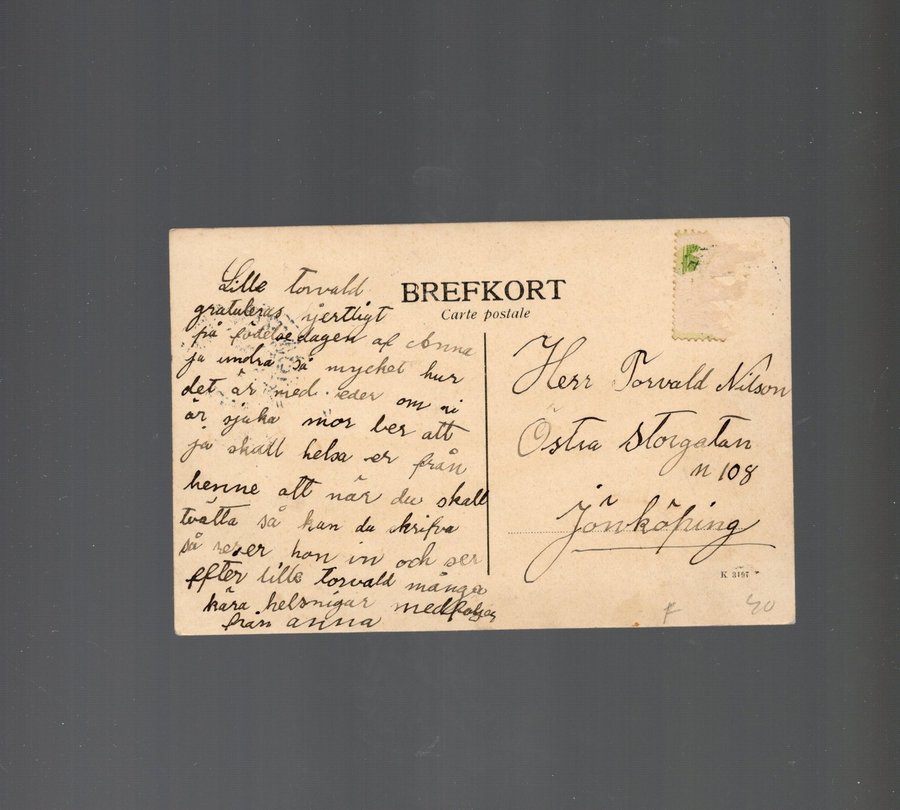 BREFKORT
Carte postale
Lille torvald
gratuleras jertligt
på födelsedagen af Anna
ja undra så mycket hur
det är med eder om ni
är sjuka mor ber att
ja skall helsa er från
henne att när du skall
tvätta så kan du skrifva
så reser hon in och ser
efter lille torvald många
kära helsnigar medföljer
från anna
Herr Torvald Nilson
Östra Storgatan
n 108
Jönköping
K 3167
F 40